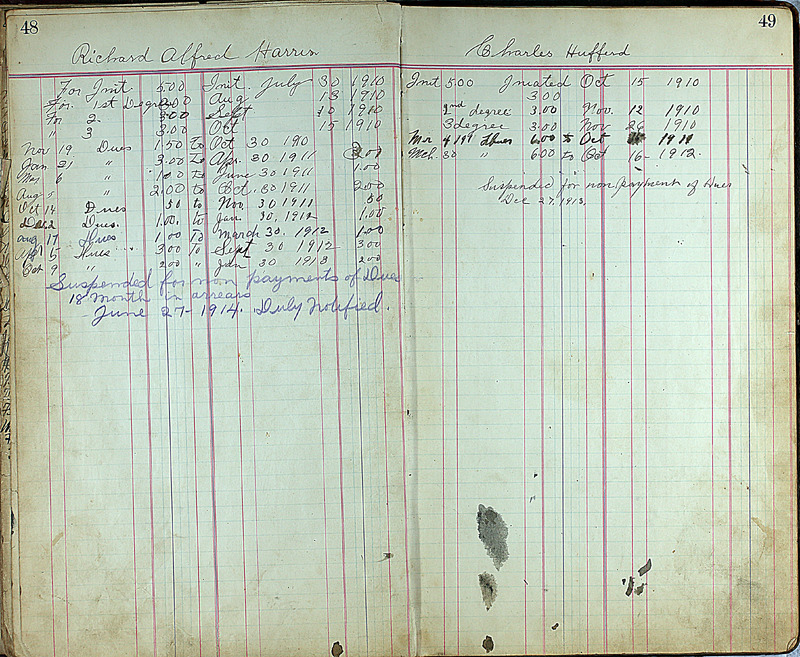 48
Richard Alfred Harris
For Init 5.00 Init. July 30 1910
For 1st Degree 3.00 Aug 13 1910
For 2 3.00 Sept 10 1910
" 3 3.00 Oct 15 1910
Nov 19 Dues 1.50 To Oct 30 190
Jan 21 " 3.00 To Apr. 30 1911 3.00
Mar 6 " 1.00 To June 30 1911 1.00
Aug 5 2.00 to Oct. 30 1911 2.00
Oct 14 Dues 50 to Nov 30 1911 50
Dec 2 Dues. 1.00. to Jan 30. 1912 1.00
Aug 17 Dues 1.00 To March 30. 1912 1.00
5 Dues 3.00 To Sept 30 1912 3.00
Oct 9 " 2.00 " Jan 30 1913 2.00
Suspended for non payments of Dues
18 Month in arrears
June 27 - 1914. Duly Notified.
49
Charles Hufferd
Init 5.00 Iniated Oct 15 1910
3.00
2nd degree 3.00 Nov. 12 1910
3 degree 3.00 Nov 26 1910
Mr 4 191 Dues 6.00 to Oct 1911
Mch. 30 " 6.00 to Oct 16 - 1912.
Suspended for non payment of Dues
Dec 27, 1913.